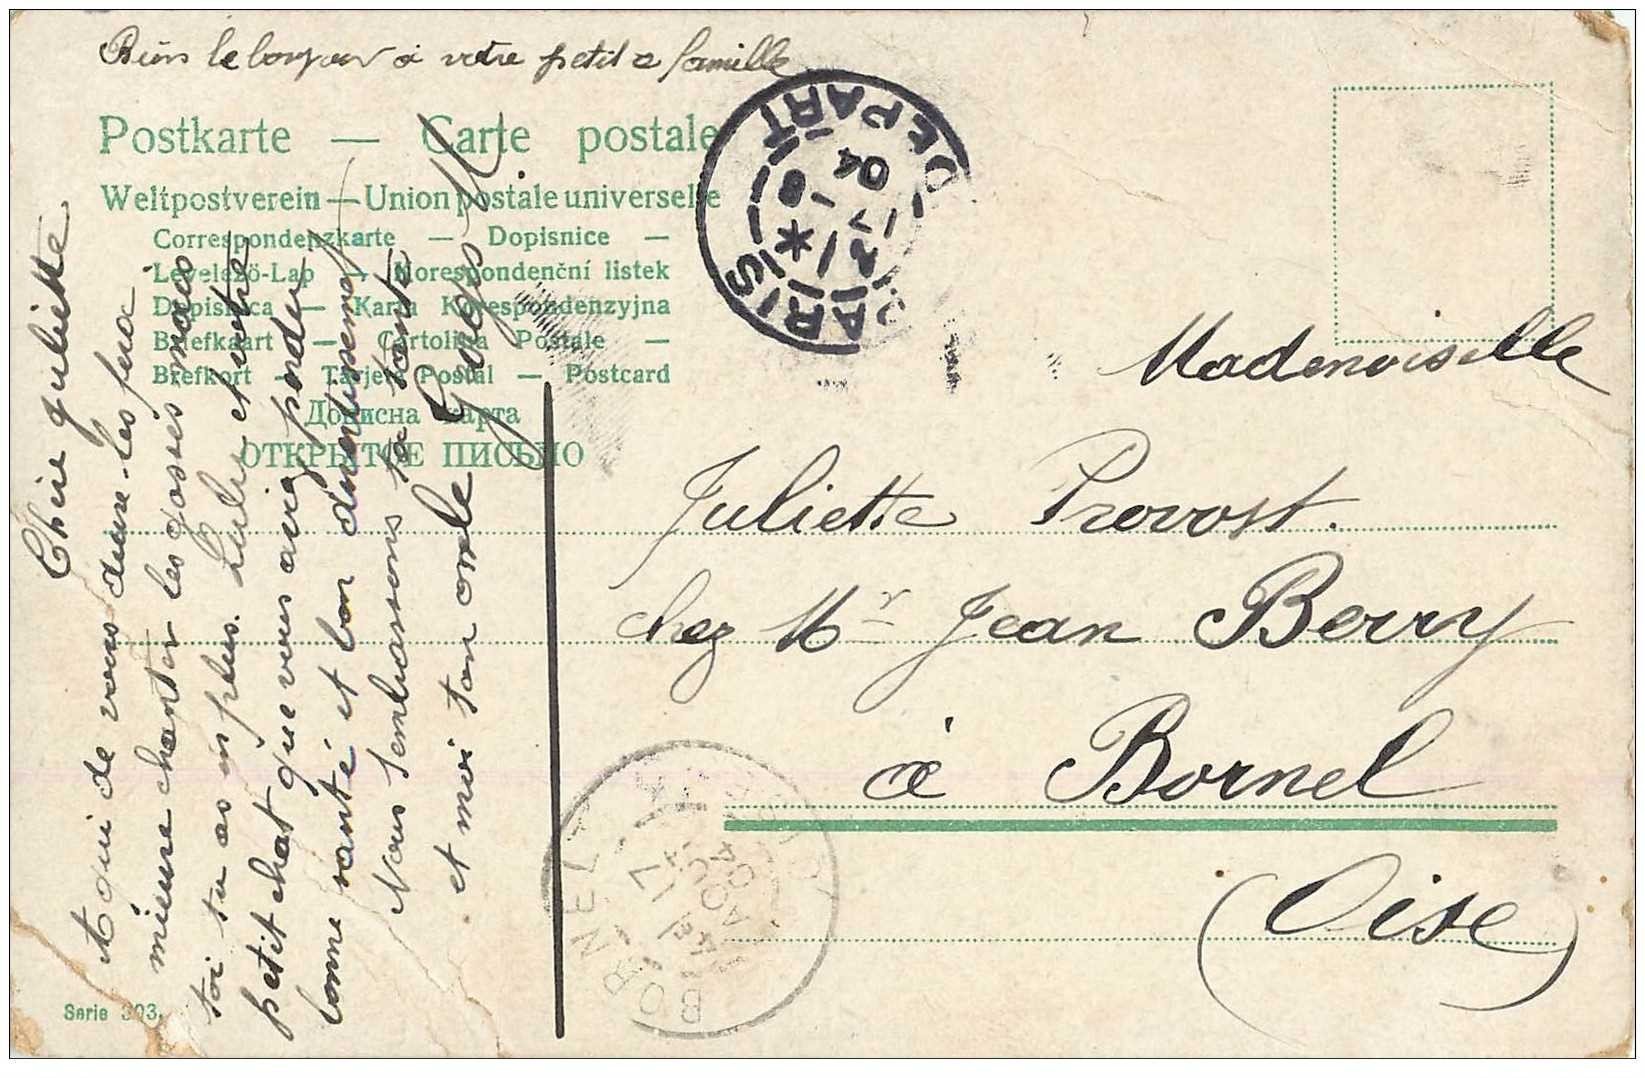 Bien le bonjour à votre petite famille
Postkarte — Carte postale
Weltpostverein — Union postale universelle
Correspondenzkarte — Dopisnice —
Levelező-Lap — Korespondenční listek
Dopisnica — Karta Korespondenzyjna
Briefkaart — Cartolina Postale —
Brefkort — Tarjeta Postal — Postcard
Дописна карта
ОТКРЫТОЕ ПИСЬМО
Chère Juliette
A qui de vous deux les fera
mieux chanter les gosses mais
toi tu as en plus. Lulu et votre
petit chat que vous avez perdu
bonne santé et bon divertissement
Nous t'embrassons ta tante
et moi ton oncle Georges
PARIS DEPART
17 8 04
Mademoiselle
Juliette Provost.
chez Mr Jean Berry
à Bornel
(Oise)
BORNEL
17 AOUT 04
Serie 303.